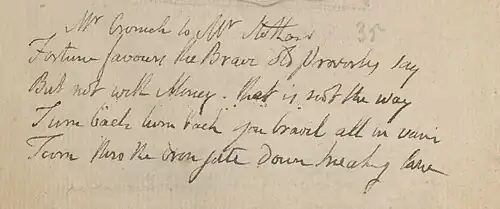 Mr Cromek to Mr Stothard 35
Fortune favours the Brave old Proverbs say
But not with Money. that is not the way
Turn back turn back you travel all in vain
Turn thro the iron gate down Sneaking lane